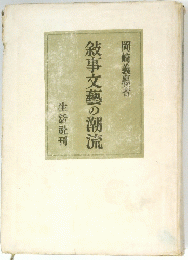 岡崎義惠著
敍事文藝の潮流
生活社刊